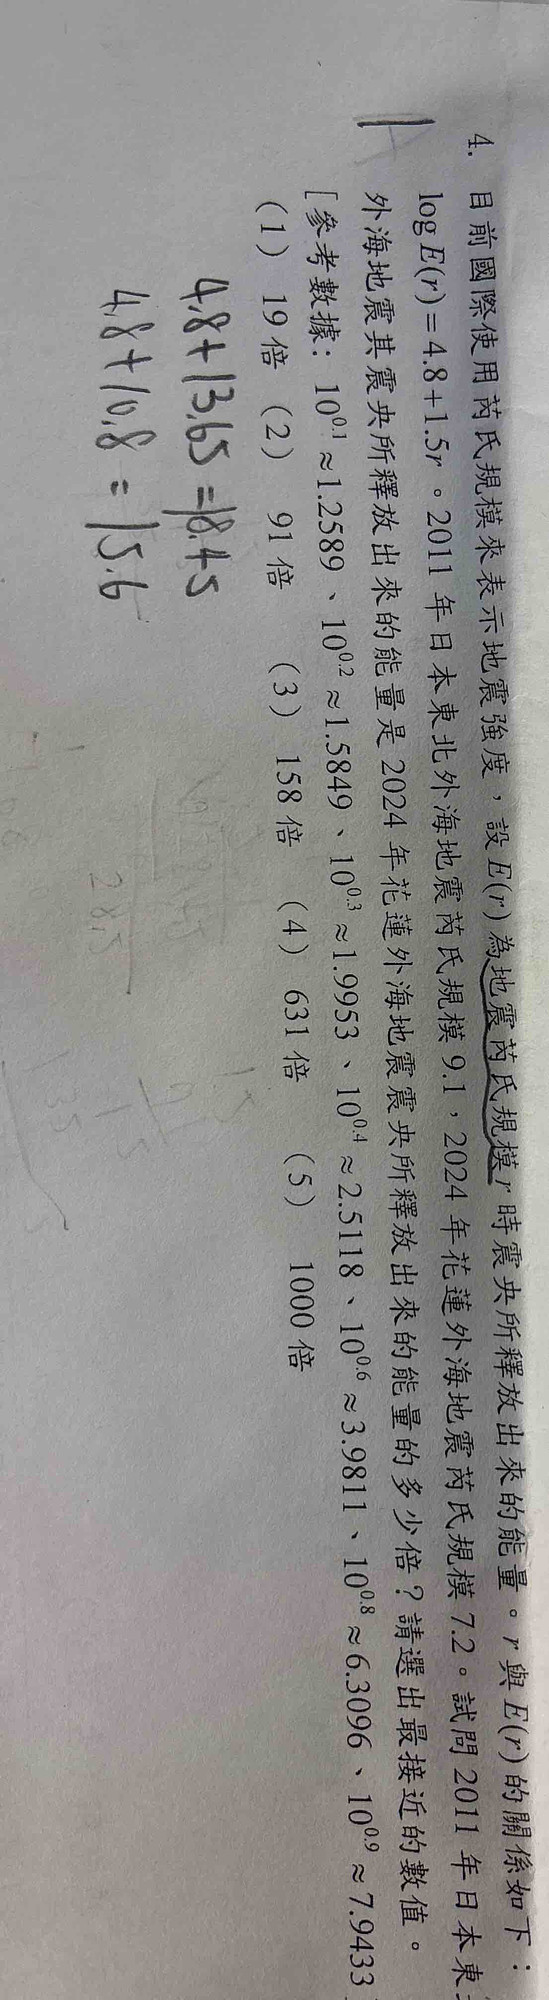 4. 目前國際使用芮氏規模來表示地震強度，設E(r)為地震芮氏規模r時震央所釋放出來的能量。r與E(r)的關係如下：
log E(r)=4.8+1.5r。2011年日本東北外海地震芮氏規模9.1，2024年花蓮外海地震芮氏規模7.2。試問2011年日本東
外海地震其震央所釋放出來的能量是2024年花蓮外海地震震央所釋放出來的能量的多少倍？請選出最接近的數值。
[參考數據：10^0.1≈1.2589、10^0.2≈1.5849、10^0.3≈1.9953、10^0.4≈2.5118、10^0.6≈3.9811、10^0.8≈6.3096、10^0.9≈7.9433
(1) 19倍 (2) 91倍 (3) 158倍 (4) 631倍 (5) 1000倍
4.8+13.65=18.45
4.8+10.8=15.6
28.5